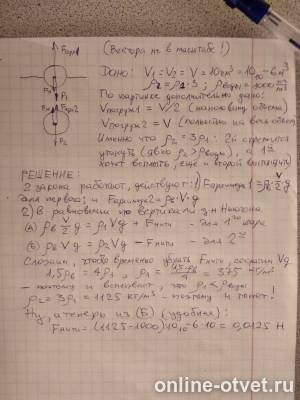 Fарх1
(Вектора не в масштабе!)
Дано: V1 = V2 = V = 10 см³ = 10·10-6 м³
ρ2 = ρ1·3; ρводы = 1000 кг/м³
По картинке дополнительно дано:
Vпогруж1 = V/2 (наполовину объема)
Vпогруж2 = V (полностью на весь объем)
Именно что ρ2 = 3ρ1: 2й стремится
утонуть (явно ρ2 > ρводы), а 1й
хочет всплыть, еще и второй вытянуть
РЕШЕНИЕ:
2 закона работают, действуют: 1) Fархимеда1 = ρв·V/2·g
для первого; и Fархимеда2 = ρв·V·g
2) В равновесии по вертикали з-н Ньютона.
(А) ρв V/2 g = ρ1 V g + Fнити - для 1го шара
(Б) ρв V g = ρ2 V g - Fнити - для 2го
Сложим, чтобы временно убрать Fнити, сократим Vg
1,5ρв = 4ρ1, ρ1 = 1,5ρв/4 = 375 кг/м³
- поэтому и всплывает, что ρ1 < ρводы
ρ2 = 3ρ1 = 1125 кг/м³ - поэтому и тонет!
Ну, а теперь из (Б) (удобнее):
Fнити = (1125-1000)·10·10-6·10 = 0,0125 Н
online-otvet.ru